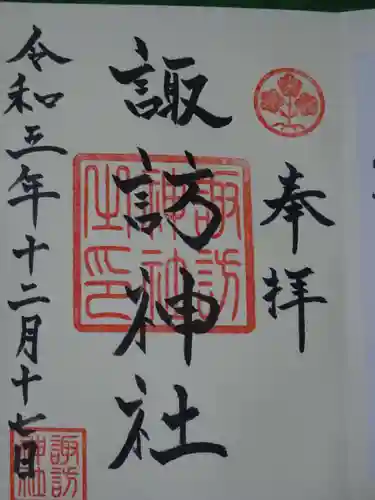 奉拝
諏訪神社
令和五年十二月十七日
諏訪神社之印
諏訪神社